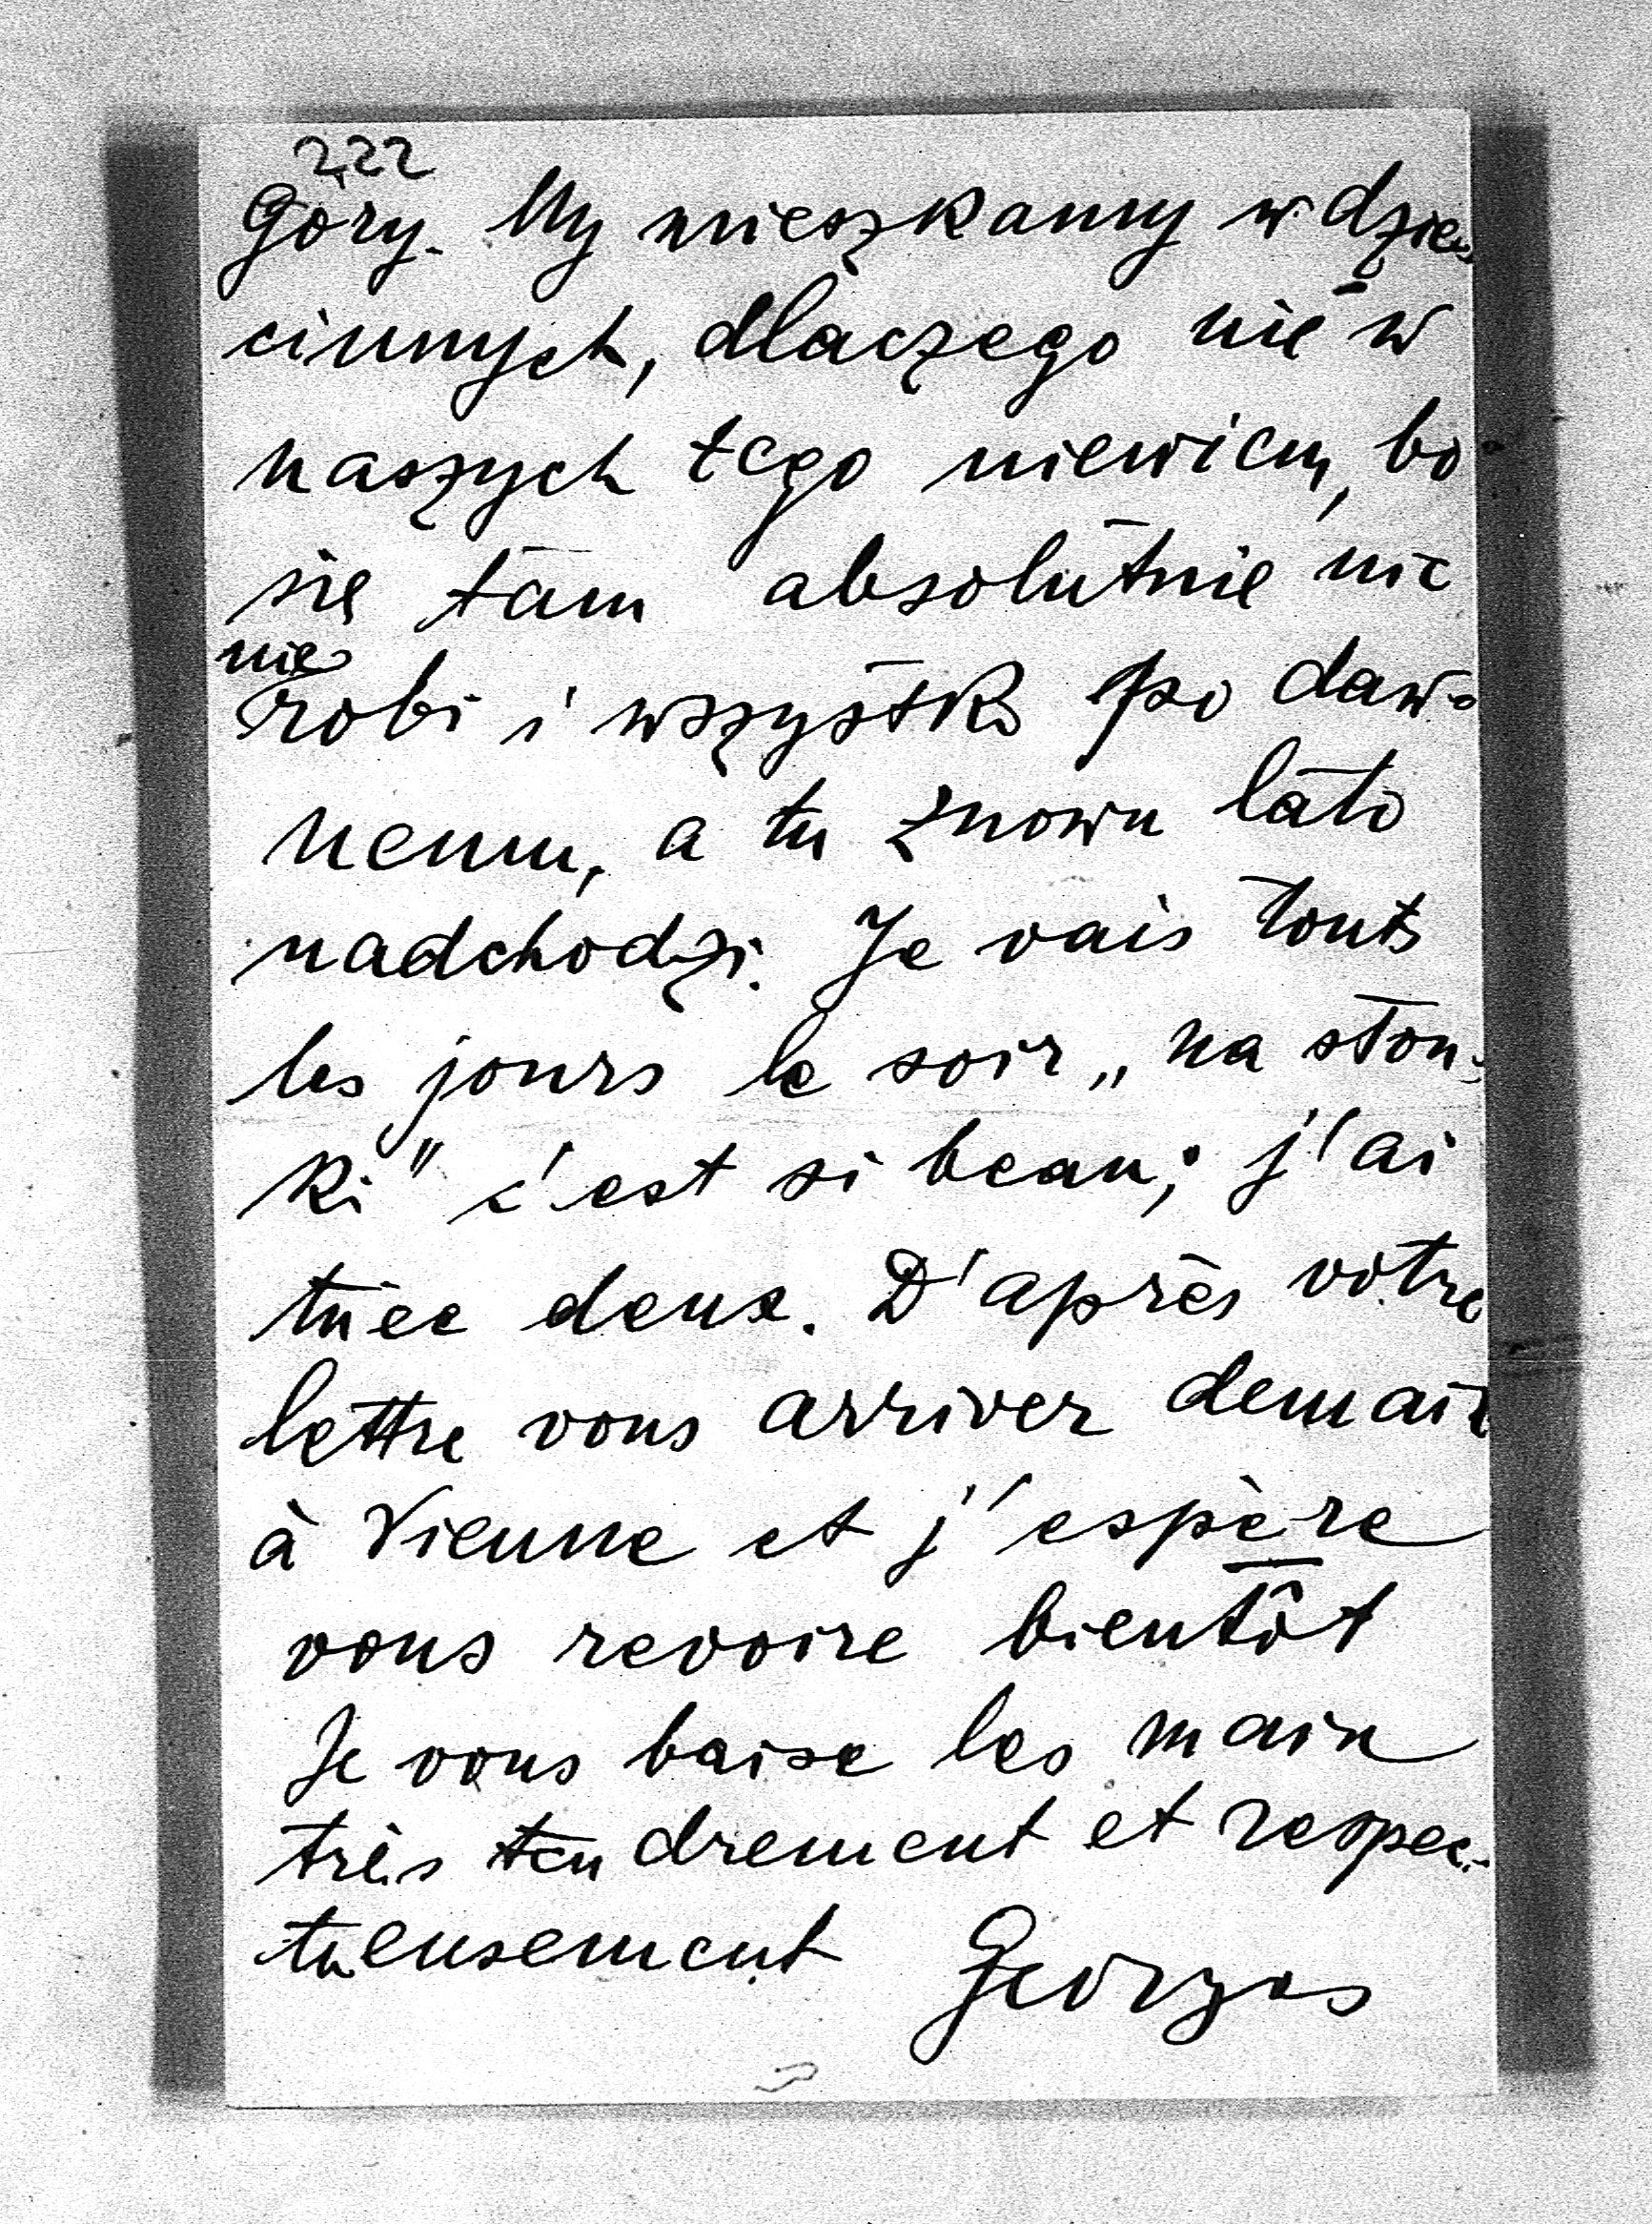 222
Góry. My mieszkamy w dzie-
cinnych, dlaczego nie w
naszych tego niewiem, bo
się tam absolutnie nic
nie
robi i wszystko po daw-
nemu, a tu znowu lato
nadchodzi. Je vais touts
les jours le soir „na słon-
ki" c'est si beau; j'ai
tuèe deux. D'après votre
lettre vous arriver demain
à Vienne et j'espère
vous revoire bientôt
Je vous baise les main
très tendrement et respec-
tueusement Georges